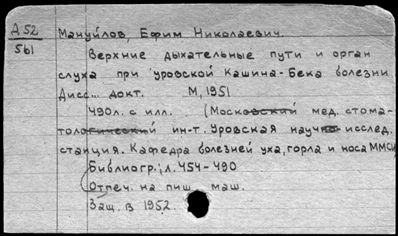 Д 52
561
Мануйлов, Ефим Николаевич.
Верхние дыхательные пути и орган
слуха при уровской Кашина-Бека болезни.
Дисс... докт. М, 1951
490л. с илл. (Московский мед. стома-
тологический ин-т. Уровская научно исслед.
станция. Кафедра болезней уха, горла и носа ММСИ
Библиогр.; л. 454-490
Отпеч. на пиш. маш.
Защ. в 1952.